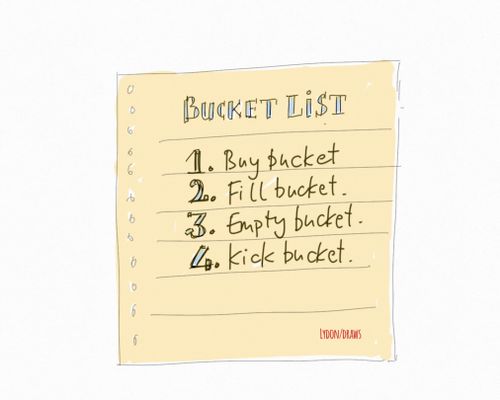 BUCKET LIST
1. Buy bucket
2. Fill bucket.
3. Empty bucket.
4. Kick bucket.
LYDON/DRAWS